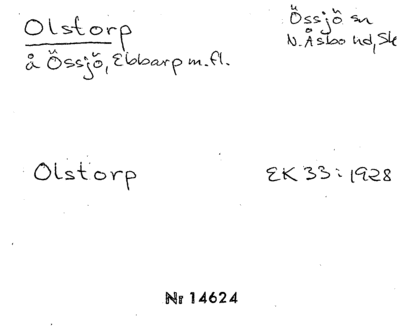 Olstorp
å Össjö, Ebbarp m.fl.
Össjö sn
N. Åsbo hd, Sk
Olstorp
EK 33: 1928
Nr 14624